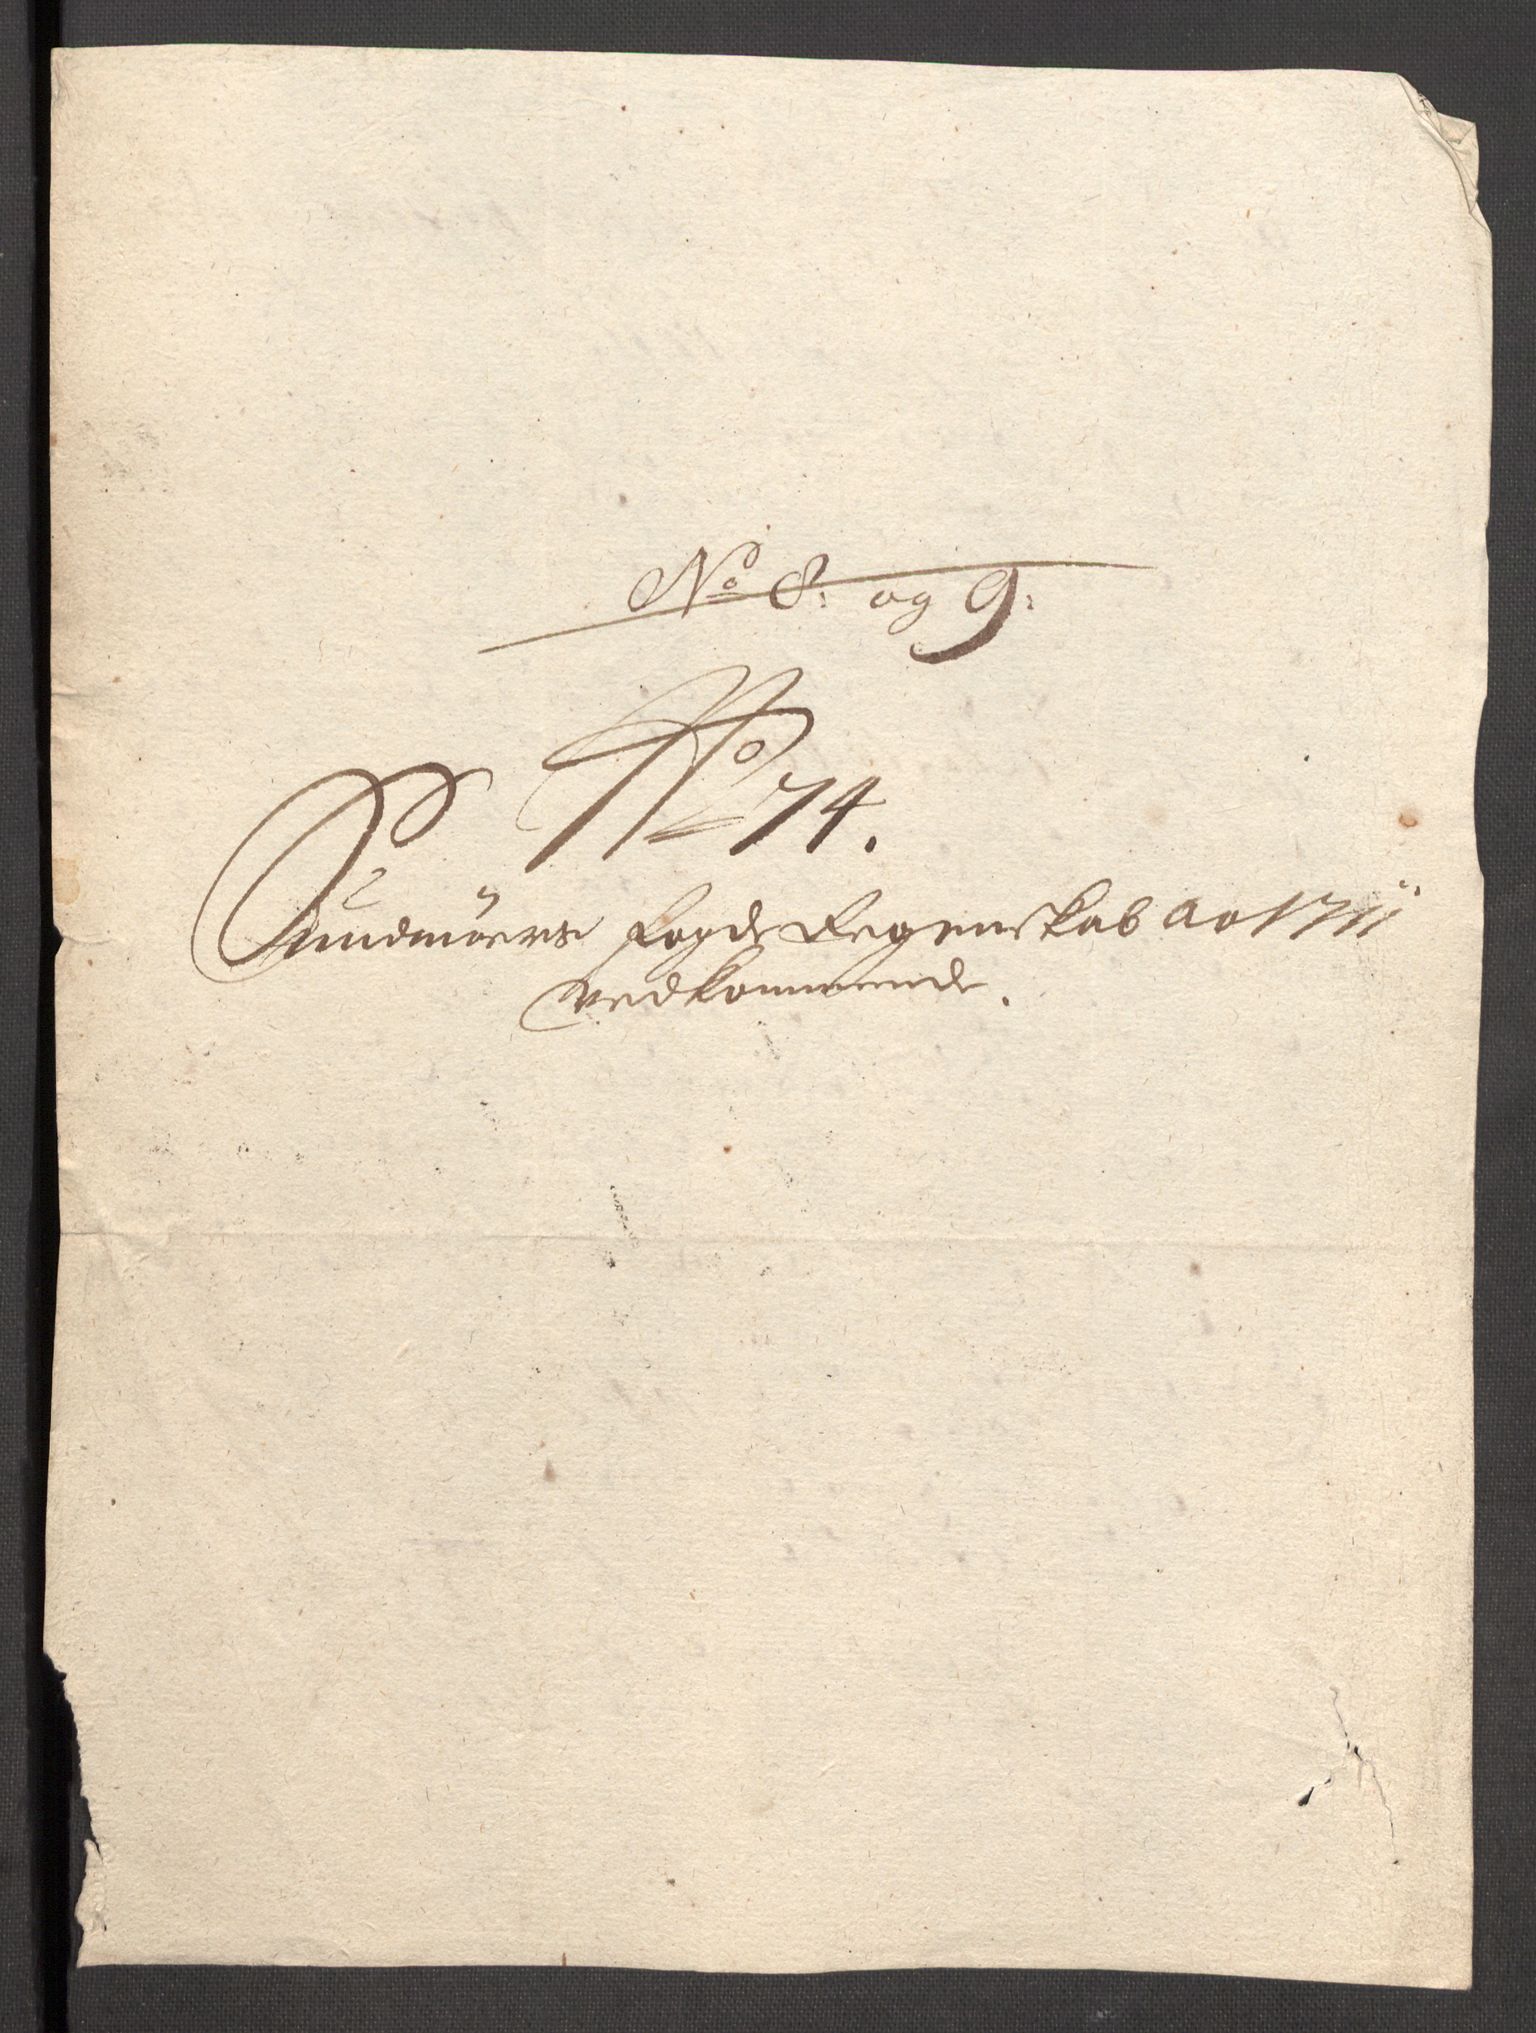 No 8: og 9:
No 74.
Sundmöers fogde Regenskab ao 1711
vedkommende.